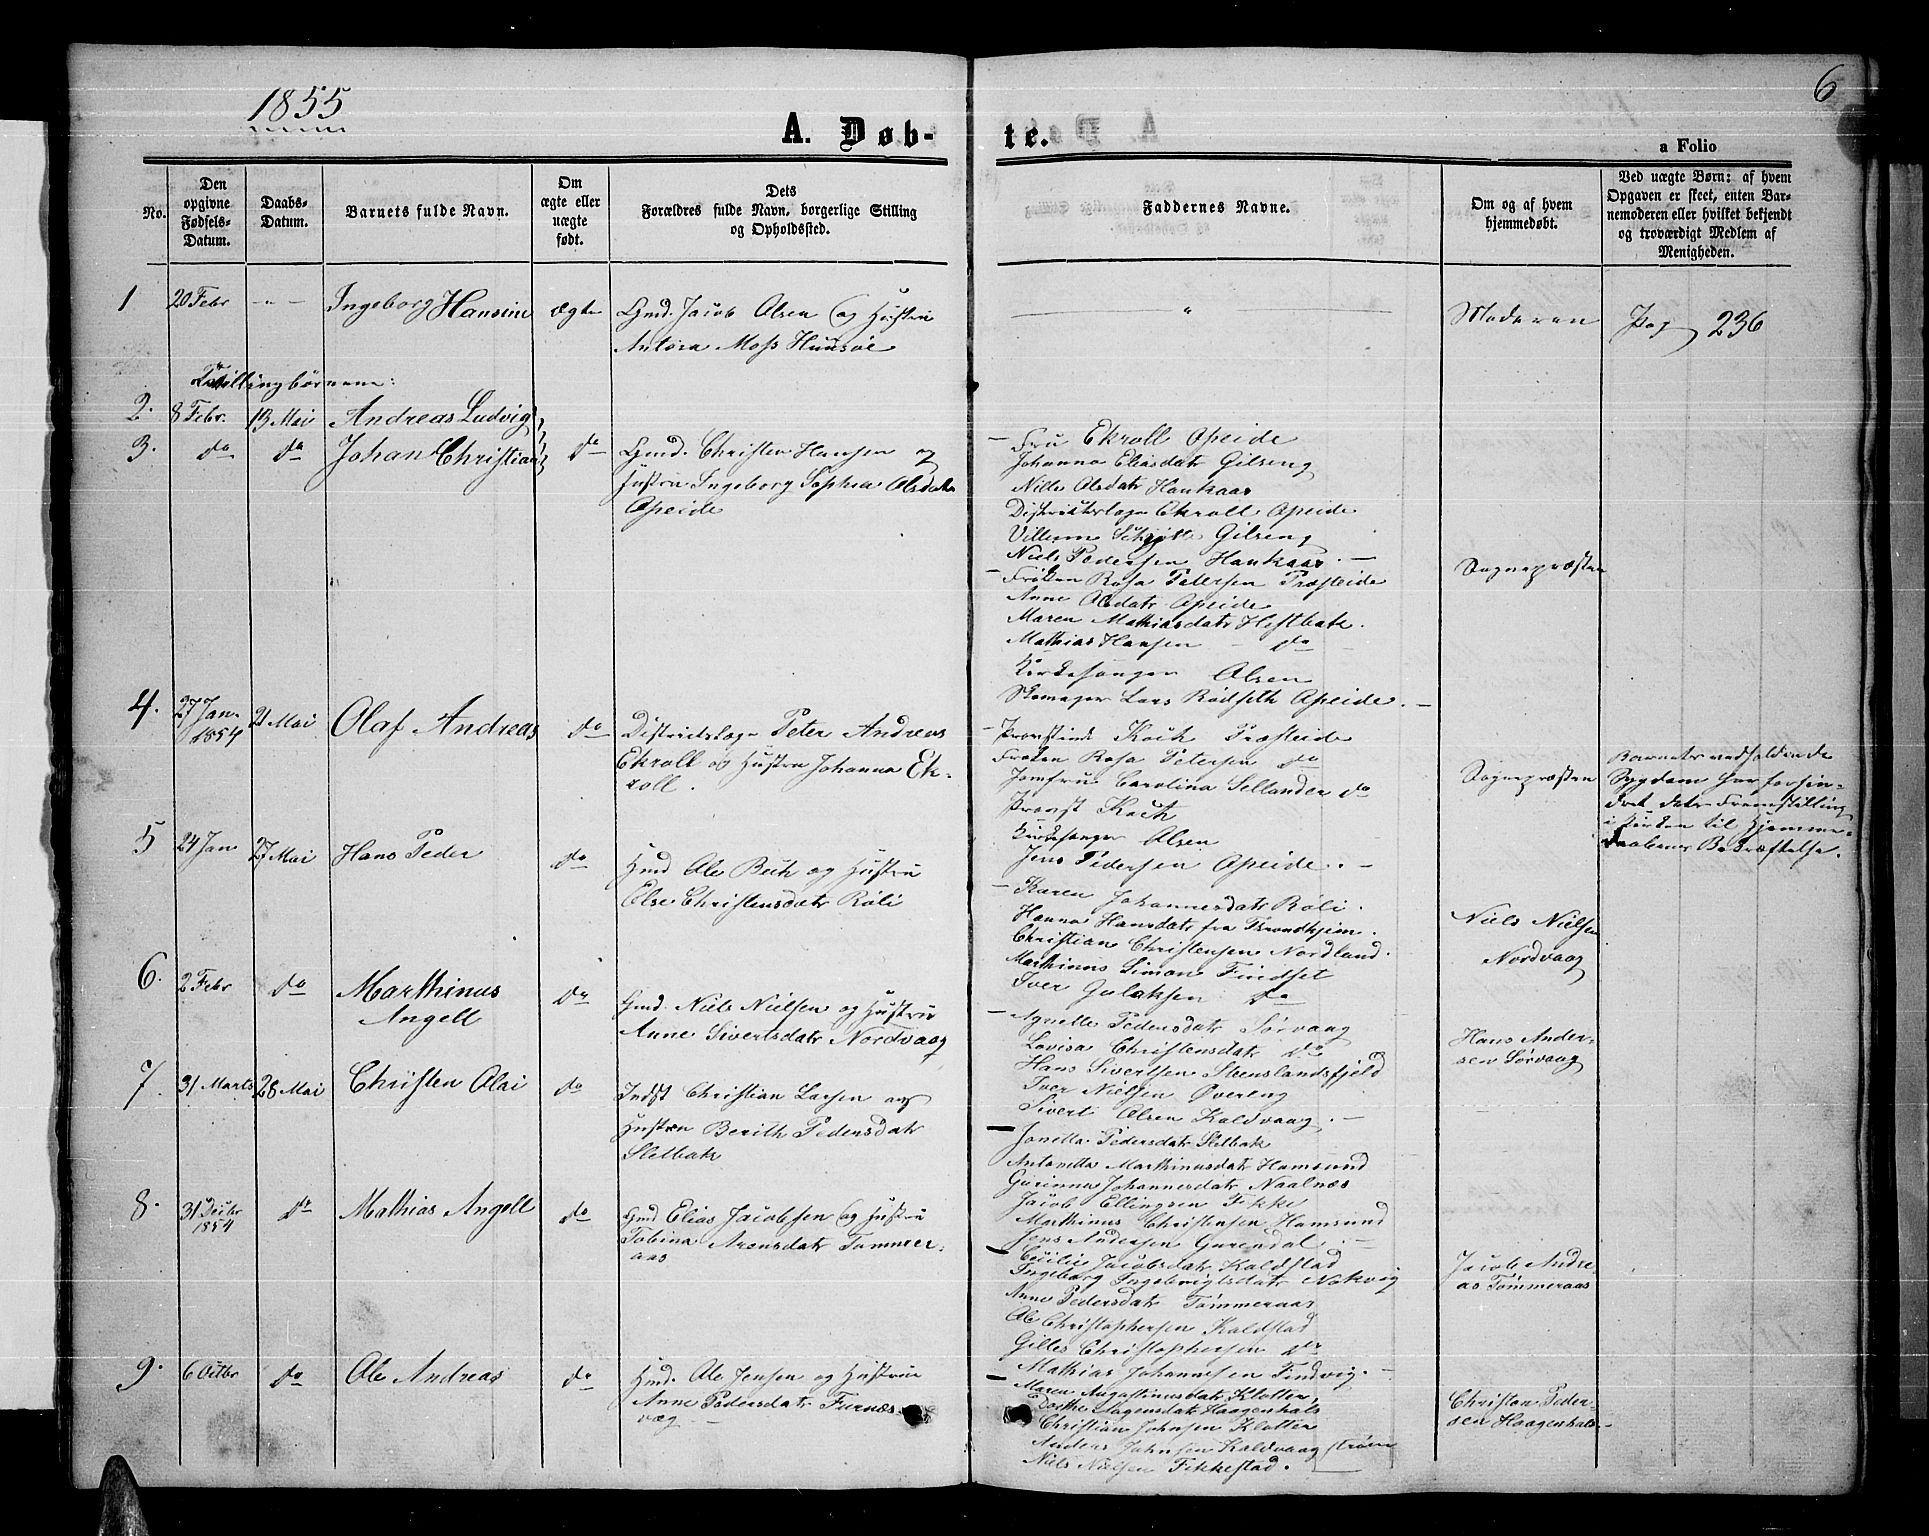 1855
6
A. Døb-
te.
a Folio
No.
Den opgivne Fødsels-Datum.
Daabs-Datum.
Barnets fulde Navn.
Om ægte eller uægte født.
Dets Forældres fulde Navn, borgerlige Stilling og Opholdssted.
Faddernes Navne.
Om og af hvem hjemmedøbt.
Ved uægte Børn: af hvem Opgaven er skeet, enten Barnemoderen eller hvilket bekjendt og troværdigt Medlem af Menigheden.
1 20 Febr - " - Ingeborg Hansine ægte Gmd. Jacob Olsen og Hustru
Antora Moss Hunsøe
"
Moderen
Pag 236
Tvillingbørnene:
2. 8 Febr. 13 Mai Andreas Ludvig
3. do do Johan Christian do Gmd. Christen Hansen og
Hustru Ingeborg Sophia Olsdatr
Opeide
Fru Ekroll Opeide
Johanna Eliasdatr Gilseng
Nille Olsdatr Hankaas
Districtslæge Ekroll Opeide
Villum Schjøtte Gilseng
Niels Pedersen Hankaas.
Frøken Rosa Petersen Præsteide
Anne Olsdatr Opeide
Maren Mathiasdatr Hestbak.
Mathias Hansen do
Kirkesanger Olsen
Skomager Lars Rødseth Opeide.
Sognepræsten
4. 27 Jan. 1854 21 Mai Olaf Andreas do Districtslæge Peter Andreas
Ekroll og Hustru Johanna Ek-
roll.
Provstinde Koch Præsteide
Frøken Rosa Petersen do
Jomfru Carolina Sellander do
Provst Koch
Kirkesanger Olsen
Jens Pedersen Opeide.
Sognepræsten
Barnets vedholdende
Sygdom har forhin-
dret dets Fremstilling
i Kirken til Hjemme-
daabens Bekræftelse.
5 24 Jan 27 Mai Hans Peder do Hmd Ole Bech og Hustru
Else Christensdatr Røli
Karen Johannesdatr Røli.
Hanna Hansdatr fra Trondhjem.
Christian Christensen Nordland.
Marthinus Simon Findset
Iver Gulaksen do
Niels Nielsen
Nordvaag
6. 2 Febr do Marthinus
Angell
do Gmd. Niels Nielsen og Hustru
Anne Sivertsdatr Nordvaag
Agnette Pedersdatr Sørvaag
Lovisa Christensdatr do
Hans Sivertsen Steenslandsfjeld
Iver Nielsen Øvereng
Sivert Olsen Kaldvaag.
Hans Ander-
sen Sørvaag
7. 31 Marts 28 Mai Christen Olai do Indst Christian Larsen og
Hustru Berith Pedersdatr
Sletbak
Jonetta Pedersdatr Sletbak
Antonetta Marthinusdatr Hamsund
Gurinna Johannesdatr Naalnæs
Jacob Ellingsen Fikke
Marthinus Christensen Hamsund
Jens Andersen Gurendal.
8. 31 Decbr 1854 do Mathias Angell do Gmd Elias Jacobsen og Hustru
Tobina Arensdatr Tømmer-
aas
Cecilie Jacobsdatr Kaldstad
Ingeborg Ingebrigtsdatr Nakvig
Anne Pedersdatr Tømmeraas
Ole Christophersen Kaldstad
Gilles Christophersen do
Mathias Johannesen Findvig.
Jacob Andre-
as Tømmeraas
9. 6 Octbr do Ole Andreas do Hmd. Ole Jensen og Hustru
Anne Pedersdatr Furnæs-
væg
Maren Augustinusdatr Klotten,
Dorthe Mogensdatr Haagenhals
Christian Johnsen Klotten
Anders Johnsen Kaldvaagstrøm
Niels Nielsen Fikkestad.
Christen Peder-
sen Haagenhals.